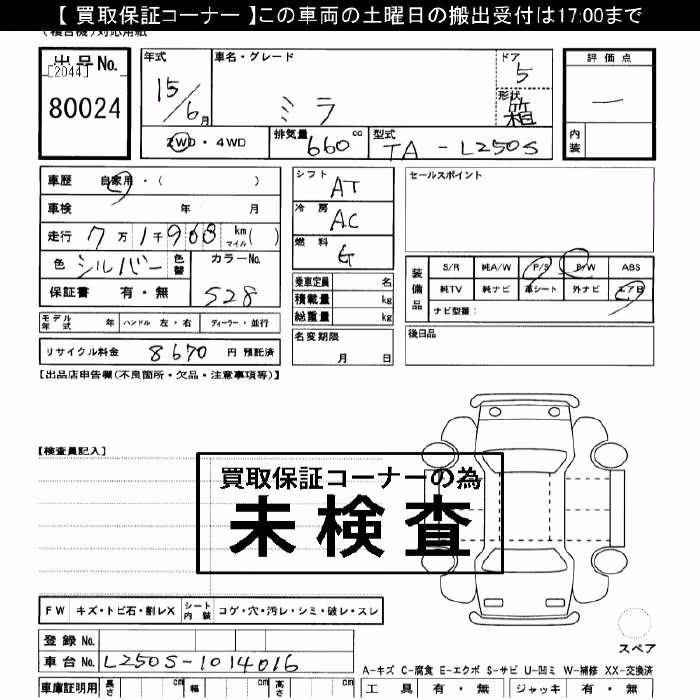 【 買取保証コーナー 】この車両の土曜日の搬出受付は17:00まで
出品No.
[2044]
80024
年式
15/6月
車名・グレード
ミラ
ドア
5
形状
箱
評価点
一
内装
2WD ・ 4WD
排気量 660 cc
型式 TA - L250S
車歴 自家用 ・ ( )
車検 年 月
走行 7万1千968 km マイル ( )
色 シルバー 色替 カラーNo.
保証書 有 ・ 無 S28
シフト AT
冷房 AC
燃料 G
乗車定員 名
積載量 kg
総重量 kg
セールスポイント
装備品
S/R 純A/W P/S P/W ABS
純TV 純ナビ 革シート 外ナビ エアB
ナビ型番:
モデル年式 年 ハンドル 左・右 ディーラー・並行
名変期限
月 日
後日品
リサイクル料金 8670 円 預託済
【出品店申告欄(不良箇所・欠品・注意事項等)】
【検査員記入】
買取保証コーナーの為
未検査
FW キズ・トビ石・割レX シート内装 コゲ・穴・汚レ・シミ・破レ・スレ
登録 No.
車台 No. L250S-1014016
スペア
A-キズ C-腐食 E-エクボ S-サビ U-凹ミ W-補修 XX-交換済
車庫証明用 長さ cm 幅 cm 高さ cm
工具 有 ・ 無 ジャッキ 有 ・ 無